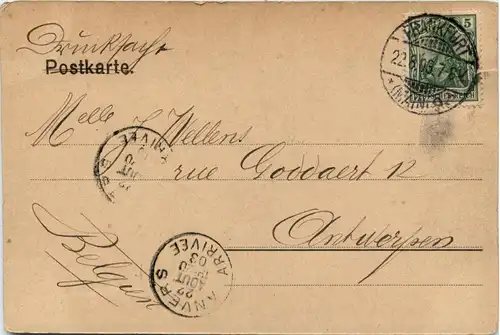 Drucksache
Postkarte.
5
FRANKFURT
(MAIN)
Melle J Wellens
rue Goddaert 12
Antwerpen
Belgien
ANVERS
ARRIVÉE
22
AOUT
03